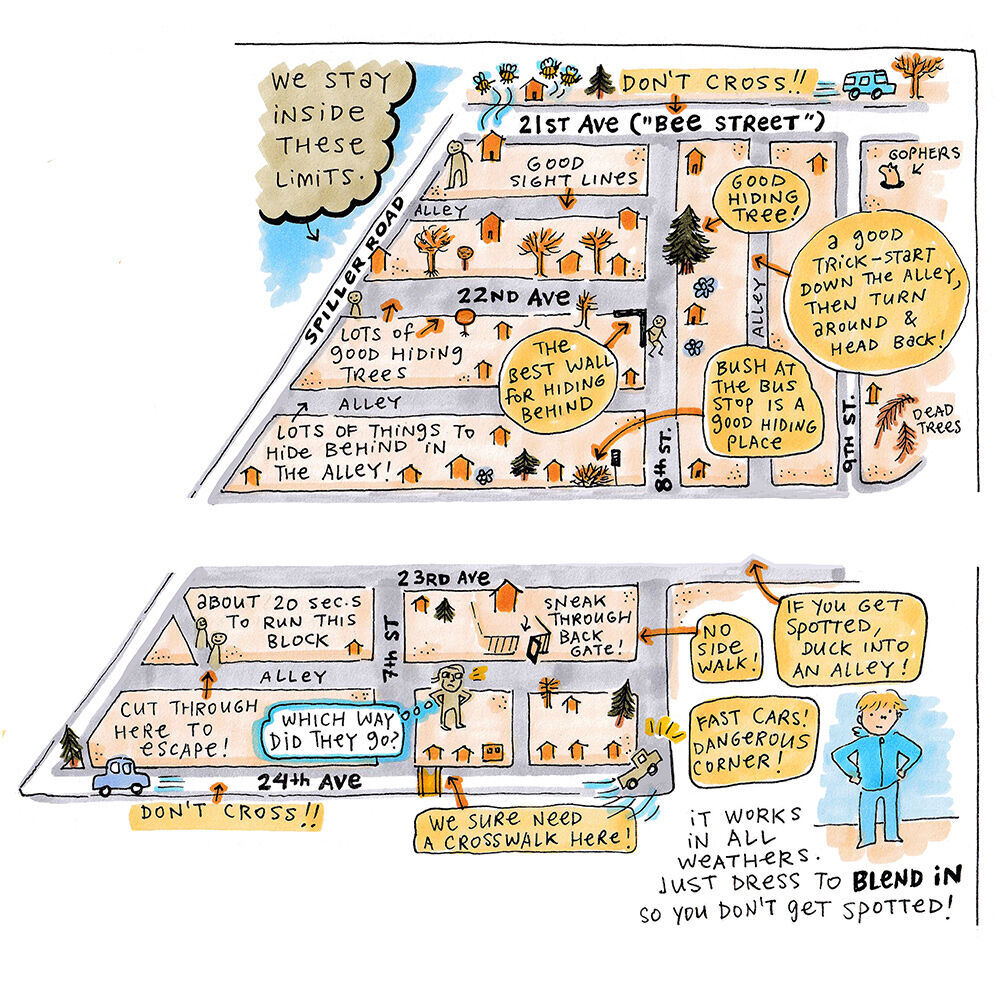 WE STAY
INSIDE
THESE
LIMITS.
DON'T CROSS!!
21ST AVE ("BEE STREET")
GOPHERS
GOOD
SIGHT LINES
GOOD
HIDING
TREE!
ALLEY
SPILLER ROAD
a GOOD
TRICK-START
DOWN THE ALLEY,
THEN TURN
aROUND &
HEAD BACK!
22ND AVE
ALLEY
LOTS OF
GOOD HIDING
TREES
THE
BEST WALL
FOR HIDING
BEHIND
BUSH AT
THE BUS
STOP IS A
GOOD HIDING
PLACE
ALLEY
DEAD
TREES
LOTS OF THINGS TO
HIDE BEHIND IN
THE ALLEY!
8th ST.
9TH ST.
23RD AVE
aBOUT 20 SEC.S
TO RUN THIS
BLOCK
7th ST
SNEAK
THROUGH
BACK
GATE!
NO
SIDE
WALK!
IF YOU GET
SPOTTED,
DUCK INTO
AN ALLEY!
ALLEY
CUT THROUGH
HERE TO
eSCAPE!
WHICH WAY
DID THEY GO?
FAST CARS!
DANGEROUS
CORNER!
24th AVE
DON'T CROSS!!
WE SURE NEED
A CROSSWALK HERE!
iT WORKS
iN ALL
WEATHERS.
JUST DRESS TO BLEND iN
SO YOU DON'T GET SPOTTED!